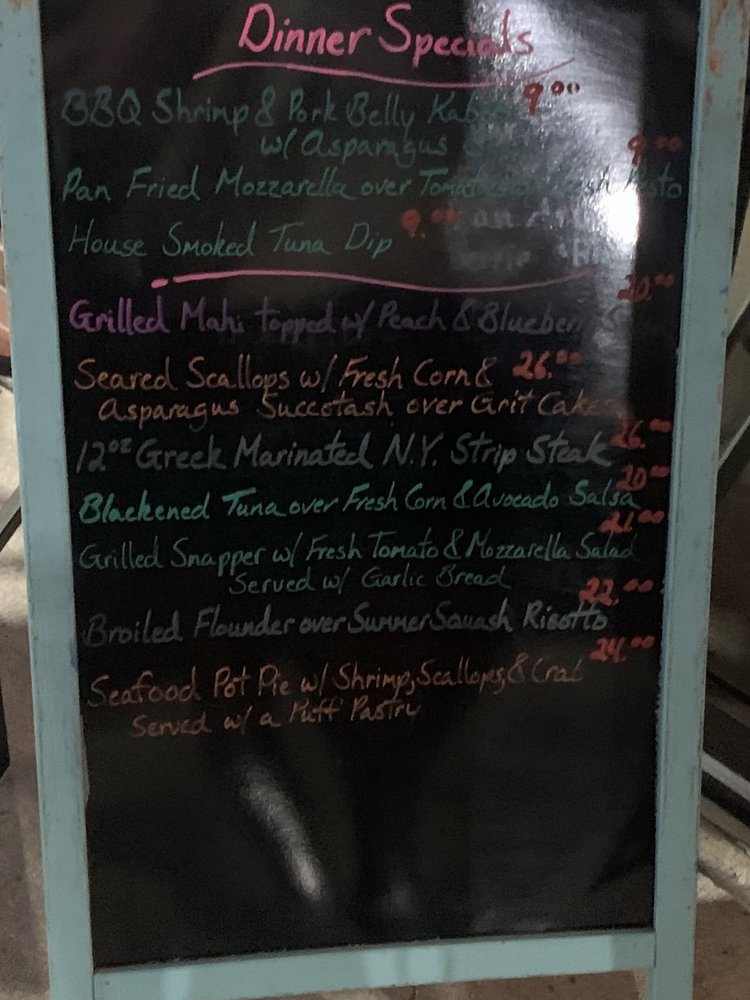 Dinner Specials
BBQ Shrimp & Pork Belly 9.00
w/ Asparagus
9.00
Pan Fried Mozzarella over Tomatoes Pesto
House Smoked Tuna Dip 9.00
20.00
Grilled Mahi topped w/ Peach & Blueberry
Seared Scallops w/ Fresh Corn & 26.00
Asparagus Succotash over Grit Cakes
26.00
12oz Greek Marinated N.Y. Strip Steak
20.00
Blackened Tuna over Fresh Corn & Avocado Salsa
21.00
Grilled Snapper w/ Fresh Tomato & Mozzarella Salad
Served w/ Garlic Bread
22.00
Broiled Flounder over Summer Squash Risotto
24.00
Seafood Pot Pie w/ Shrimp, Scallops, & Crab
Served w/ a Puff Pastry